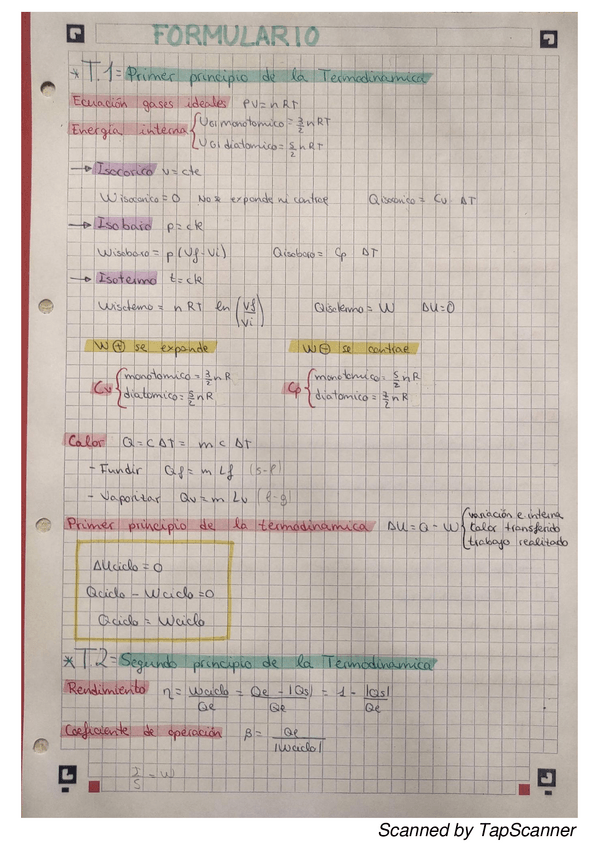 FORMULARIO
* T.1= Primer principio de la Termodinamica
Ecuación gases ideales PV = nRT
Energía interna { UGI monotomico = 3/2 nRT
UGI diatomico = 5/2 nRT
→ Isocorico V = cte
W isocorico = 0 No se expande ni contrae Q isocorico = Cv · ΔT
→ Isobaro p = cte
W isobaro = p (Vf - Vi) Q isobaro = Cp ΔT
→ Isotermo t = cte
W isotermo = nRT ln (Vf/Vi) Q isotermo = W ΔU = 0
W ⊕ se expande W ⊖ se contrae
Cv { monotomico = 3/2 nR Cp { monotomico = 5/2 nR
diatomico = 5/2 nR diatomico = 7/2 nR
Calor Q = C ΔT = m c ΔT
- Fundir Qf = m Lf (s-l)
- Vaporizar Qv = m Lv (l-g)
Primer principio de la termodinamica ΔU = Q - W { variación e interna
calor transferido
trabajo realizado
ΔU ciclo = 0
Q ciclo - W ciclo = 0
Q ciclo = W ciclo
* T.2= Segundo principio de la Termodinamica
Rendimiento η = Wciclo/Qe = Qe - |Qs|/Qe = 1 - |Qs|/Qe
Coeficiente de operación β = Qe/|Wciclo|
2/5 = W
Scanned by TapScanner